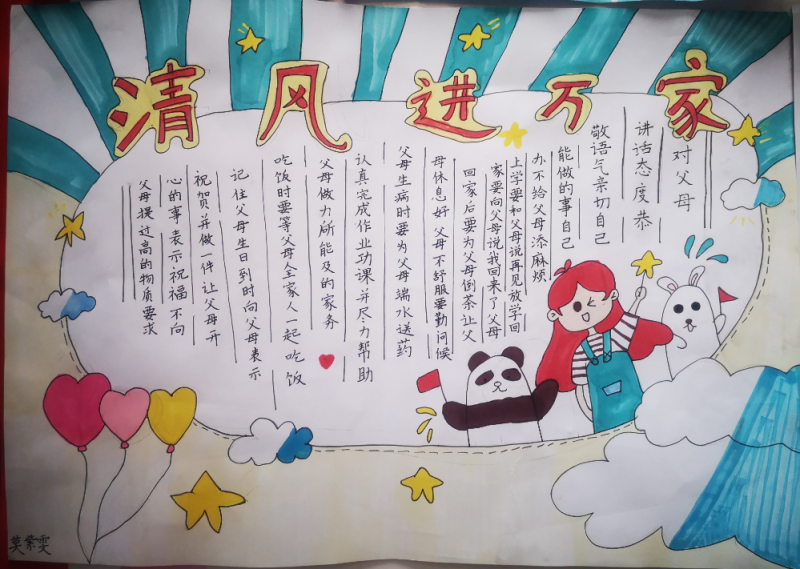 清风进万家
对父母
讲话态度恭
敬语气亲切自己
能做的事自己
办不给父母添麻烦
上学要和父母说再见放学回
家要向父母说我回来了父母
回家后要为父母倒茶让父
母休息好父母不舒服要勤问候
父母生病时要为父母端水送药
认真完成作业功课并尽力帮助
父母做力所能及的家务
吃饭时要等父母全家人一起吃饭
记住父母生日到时向父母表示
祝贺并做一件让父母开
心的事表示祝福不向
父母提过高的物质要求
莫紫雯